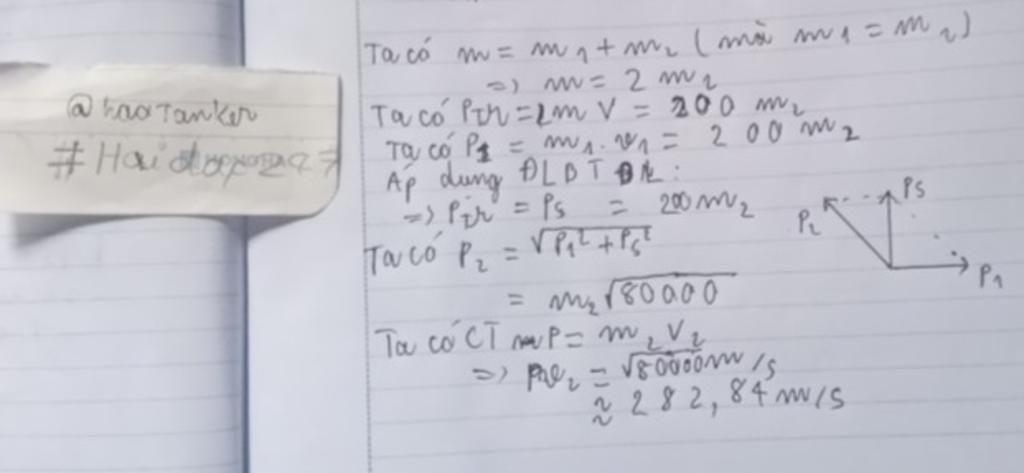 @haoTanker
Ta có m = m₁ + m₂ (mà m₁ = m₂)
=> m = 2 m₂
Ta có Ptr = 2m V = 200 m₂
Ta có P₁ = m₁.v₁ = 200 m₂
Áp dụng ĐLBT ĐL:
=> Ptr = Ps = 200 m₂
Ta có P₂ = √P₁² + Ps²
= m₂√80000
Ta có CT P = m₂V₂
=> v₂ = √80000 m/s
≈ 282,84 m/s
Ps
P₂
P₁